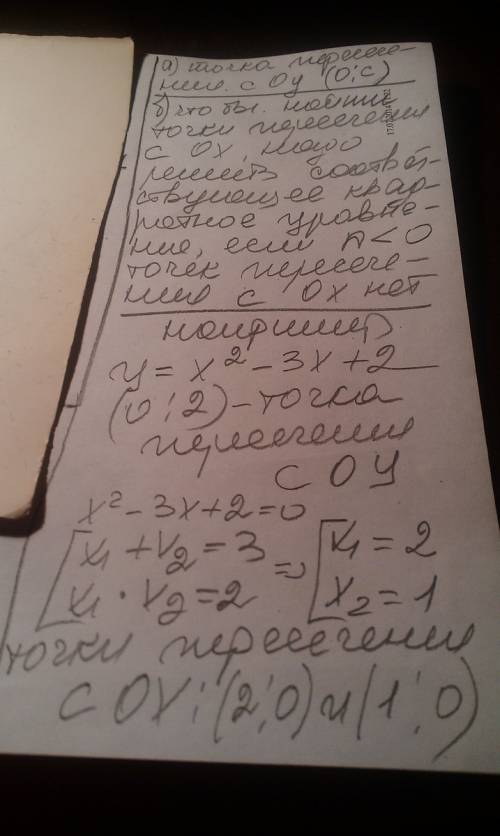 а) точка пересече-
ния с Oy (0; c)
б) что бы найти
точки пересечения
с OX, надо
решить соответ-
ствующее квад-
ратное уравне-
ние, если Д<0
точек пересече-
ния с OX нет
например
y = x² - 3x + 2
(0; 2) - точка
пересечения
с OY
x² - 3x + 2 = 0
[x₁ + x₂ = 3
x₁ · x₂ = 2 => [x₁ = 2
x₂ = 1
точки пересечения
с OX: (2; 0) и (1; 0)